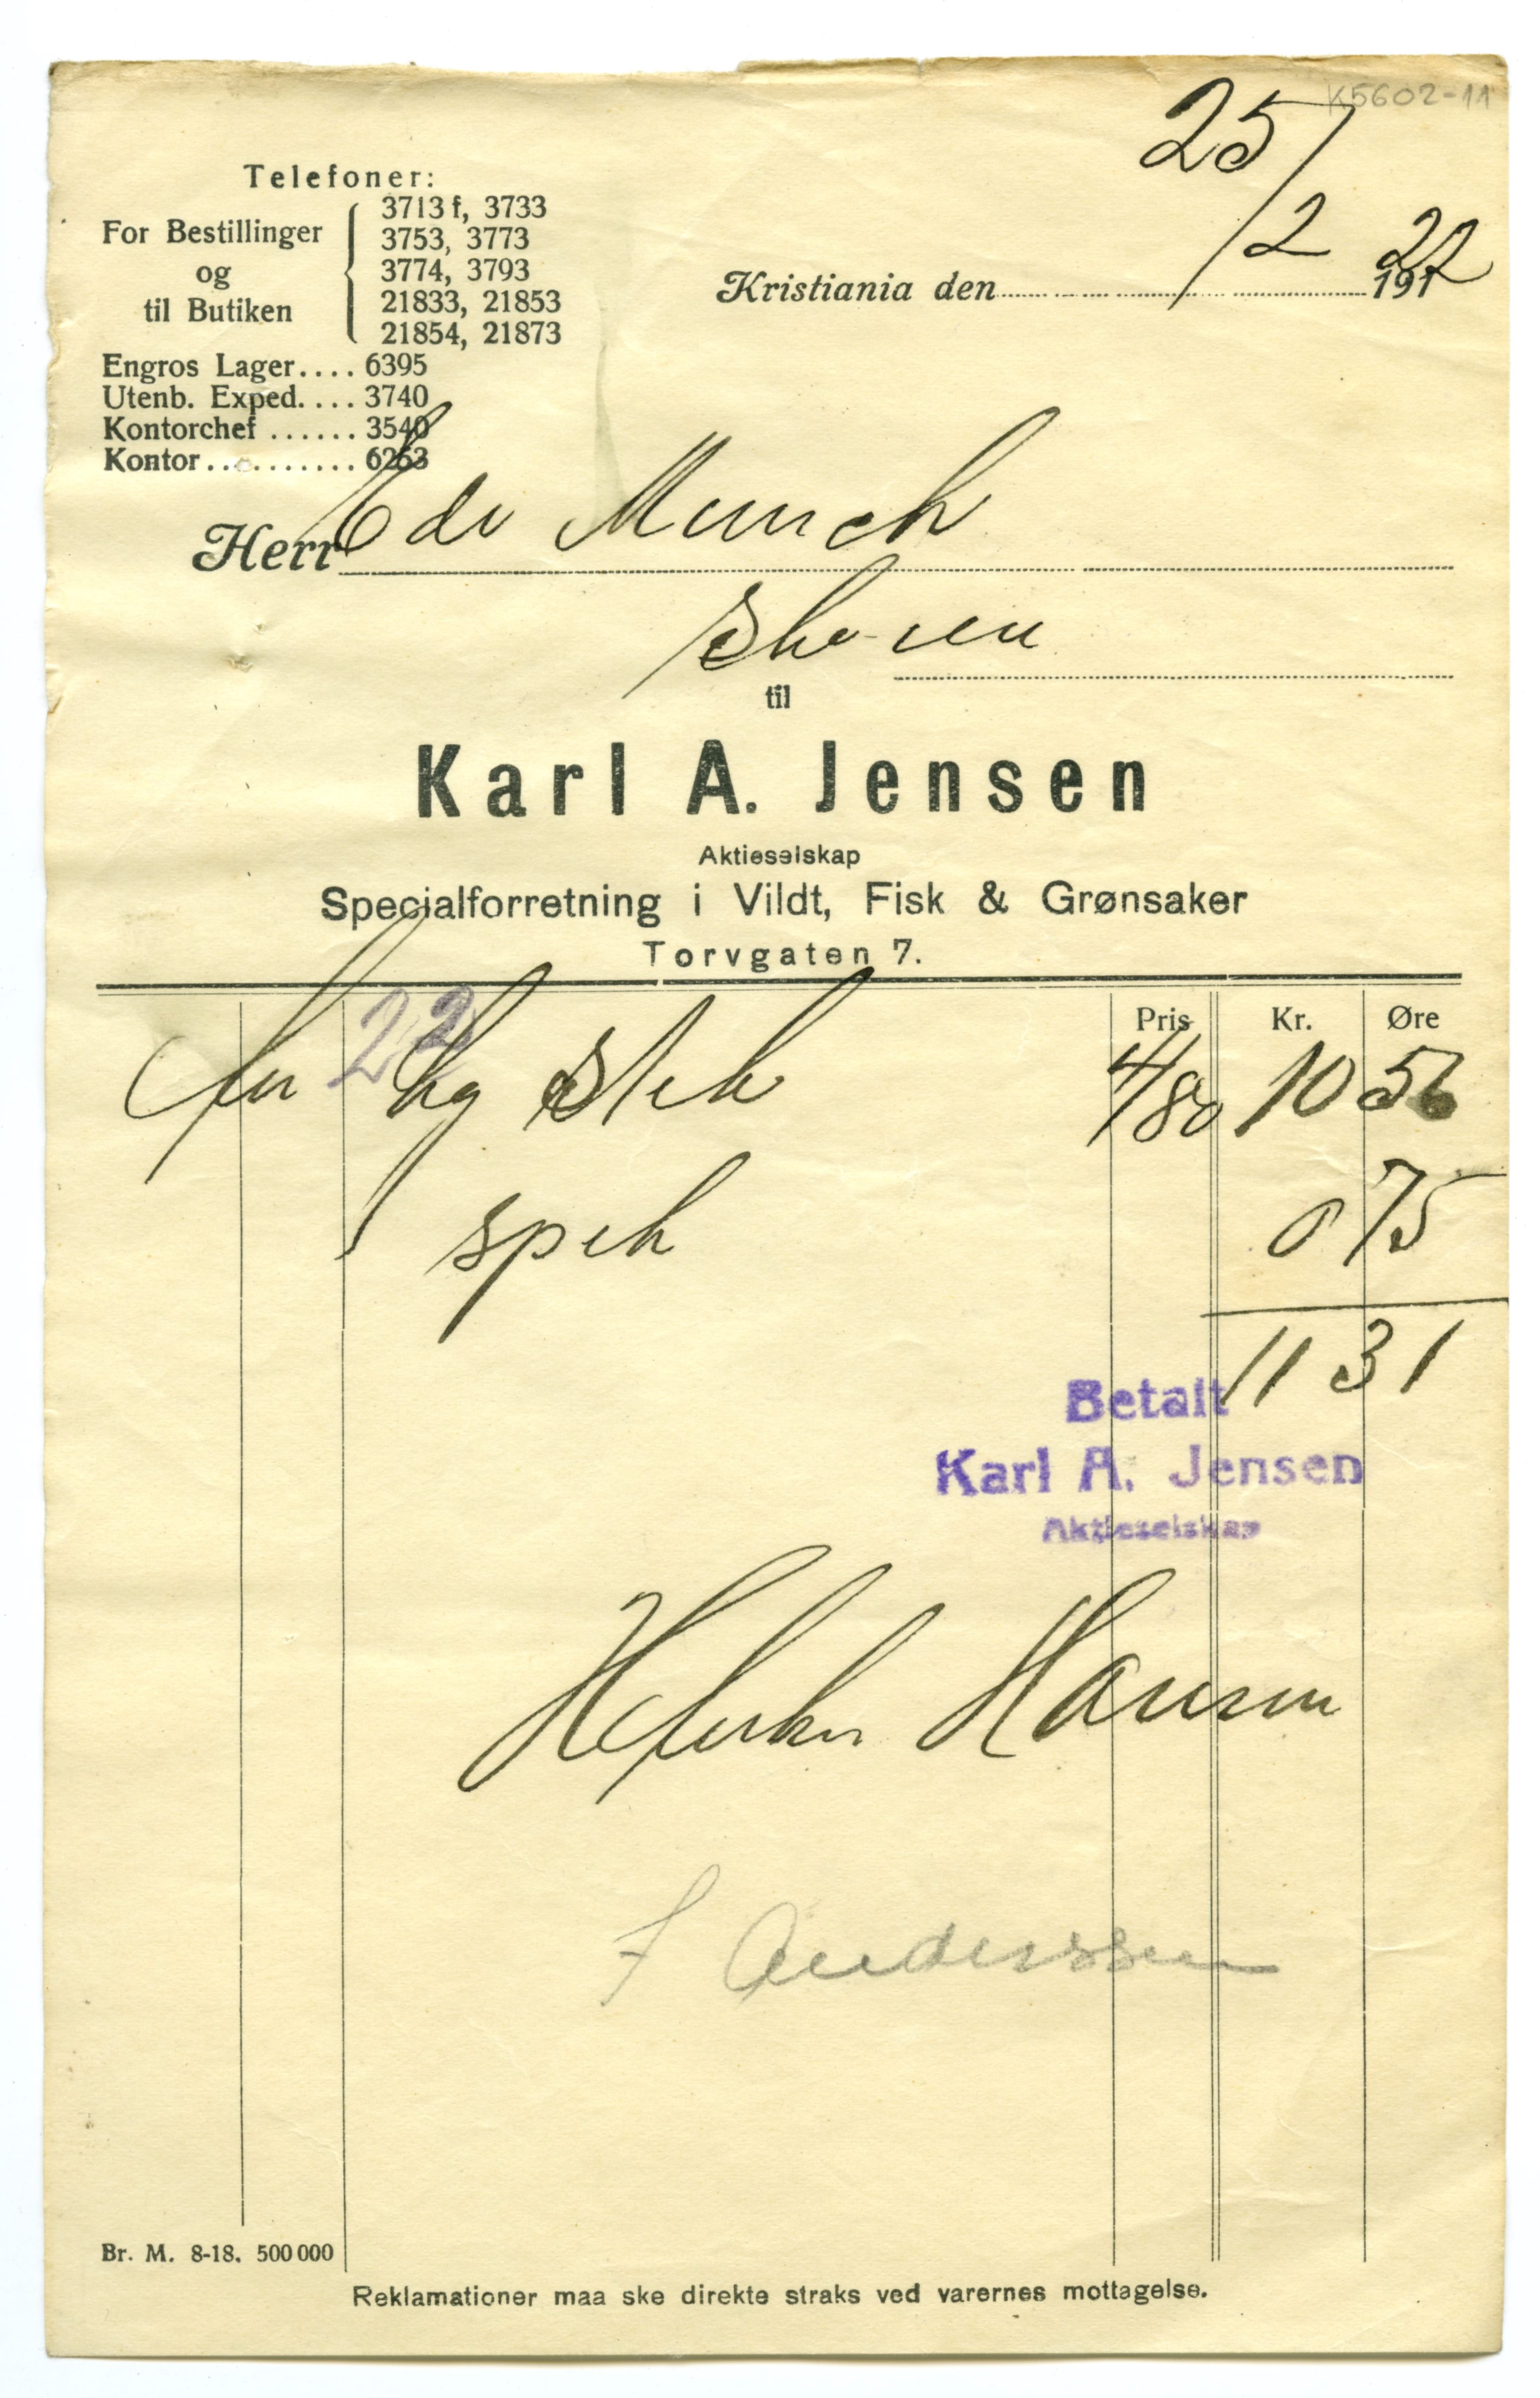 K5602-11
25/2 22
Telefoner:
For Bestillinger og til Butiken
3713 f, 3733
3753, 3773
3774, 3793
21833, 21853
21854, 21873
Engros Lager.... 6395
Utenb. Exped. ... 3740
Kontorchef ...... 3540
Kontor .......... 6263
Kristiania den 191
Herr Edv Munch
Skøien
til
Karl A. Jensen
Aktieselskap
Specialforretning i Vildt, Fisk & Grønsaker
Torvgaten 7.
Pris Kr. Øre
22 kg stek 4/80 10 56
spek 0 75
11 31
Betalt
Karl A. Jensen
Aktieselskap
Hansen
F Anderssen
Br. M. 8-18. 500 000
Reklamationer maa ske direkte straks ved varernes mottagelse.